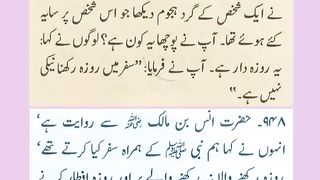 نے ایک شخص کے گرد ہجوم دیکھا جو اس شخص پر سایہ
کئے ہوئے تھا۔ آپ نے پوچھا یہ کون ہے؟ لوگوں نے کہا:
یہ روزہ دار ہے۔ آپ نے فرمایا: ”سفر میں روزہ رکھنا نیکی
نہیں ہے۔“
۹۴۸۔ حضرت انس بن مالک ؓ سے روایت ہے‘
انہوں نے کہا ہم نبی ﷺ کے ہمراہ سفر کیا کرتے تھے‘
روزہ رکھنے والا نہ رکھنے والے پر اور روزہ افطار کرنے